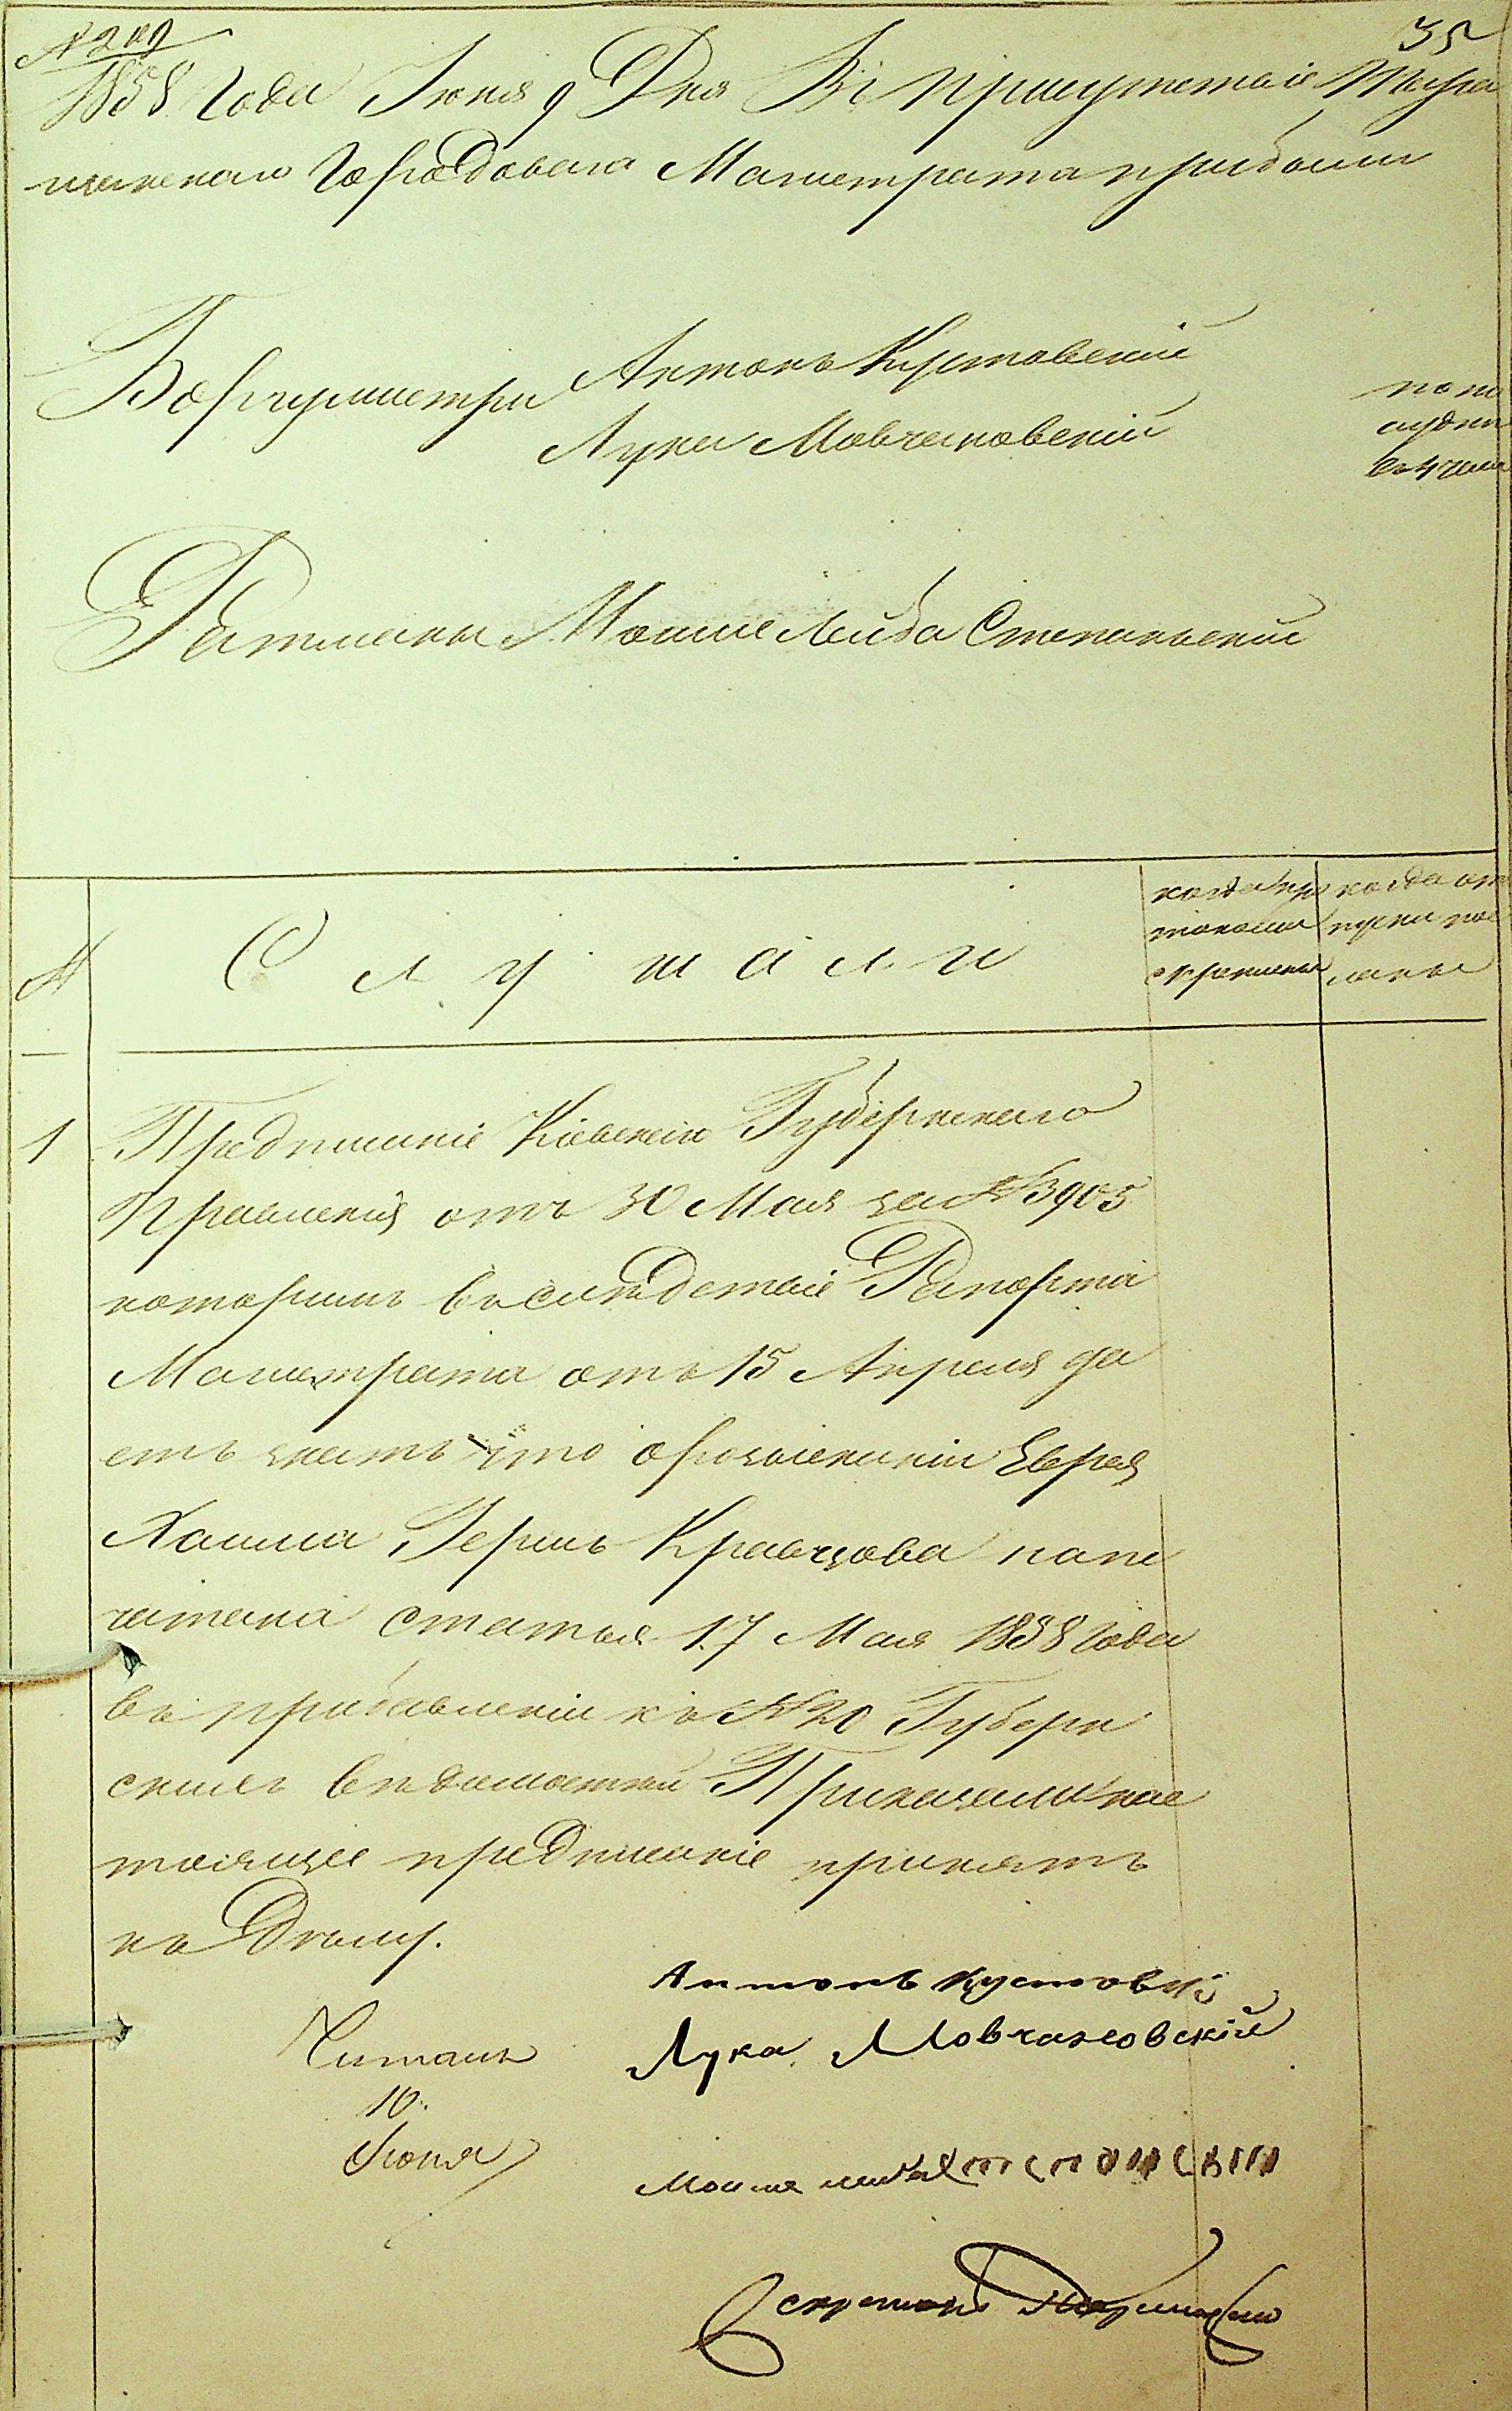 № 202
35
1858 Года Июня 9 Дня Въ присутствіе Тара
щанскаго Городоваго Магистрата прибыли
Боргумистри Антонъ Кустовскій
Лука Мовчановскій
по по
лудни
въ 4 часа
Ратманы Мошко Лейба Степанскій
№
Слушали
когда про
токолы
скреплены
когда от
пуски пос
ланы
1
Предписаніе Кіевскаго Губернскаго
Правленія отъ 30 Мая за № 3905
которымъ въ следствіе Рапорта
Магистрата отъ 15 Апреля да
етъ знать что о розысканіи Еврея
Хаима Герша Кравцова напе
чатана статья 17 Мая 1858 Года
въ прибавленіи къ № 20 Губерн
скихъ вѣдомостей Приказали нас
тоящее предписаніе принять
къ Делу.
Антонъ Кустовскій
Лука Мовчановскій
Читалъ
10
Июня
Мошка лейба степански
Секретарь